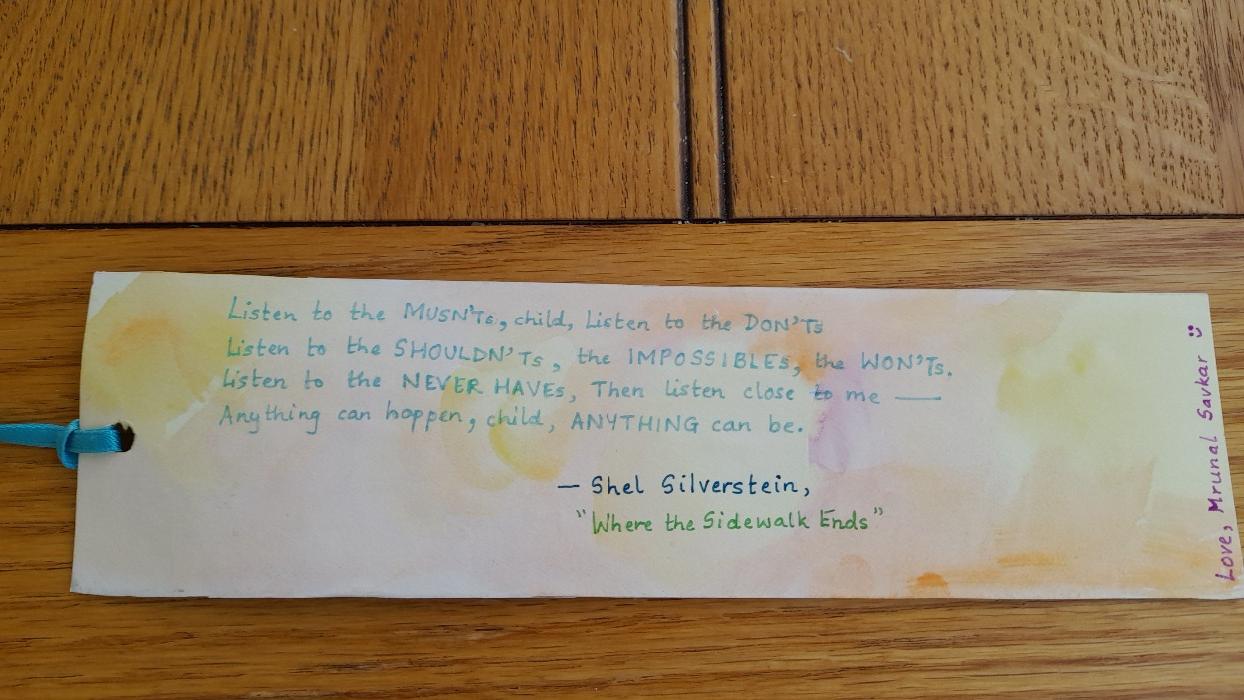 Listen to the MUSN'Ts, child, Listen to the DON'Ts
Listen to the SHOULDN'Ts, the IMPOSSIBLEs, the WON'Ts.
Listen to the NEVER HAVEs, Then listen close to me —
Anything can happen, child, ANYTHING can be.
— Shel Silverstein,
"Where the Sidewalk Ends"
Love, Mrunal Savkar :)